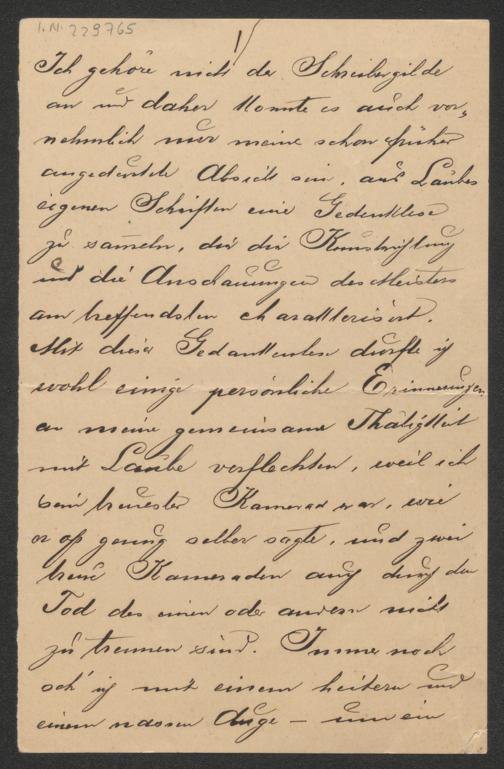 I.N. 229765
1/
Ich gehöre nicht der Schreibergilde
an und daher konnte es auch vor-
nehmlich nur meine schon früher
angedeutete Absicht sein, aus Laubes
eigenen Schriften eine Gedenklese
zu sammeln, die die Kunstrichtung
und die Anschauungen des Meisters
am treffendsten charakterisirt.
Mit dieser Gedankenlese durfte ich
wohl einige persönliche Erinnerungen
an meine gemeinsame Thätigkeit
mit Laube verflechten, weil ich
sein treuester Kamerad war, wie
er oft genug selber sagte, und zwei
treue Kameraden auch durch den
Tod des einen oder andern nicht
zu trennen sind. Immer noch
seh' ich mit einem heitern und
einem nassen Auge – um ein